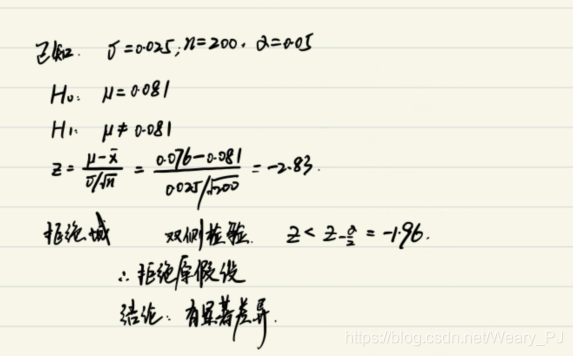 已知. σ=0.025, n=200. α=0.05
H₀: μ=0.081
H₁: μ≠0.081
z = μ-x̄ / σ/√n = 0.076-0.081 / 0.025/√200 = -2.83.
拒绝域 双侧检验. z < z-α/2 = -1.96.
∴ 拒绝原假设
结论: 有显著差异.
https://blog.csdn.net/Weary_PJ